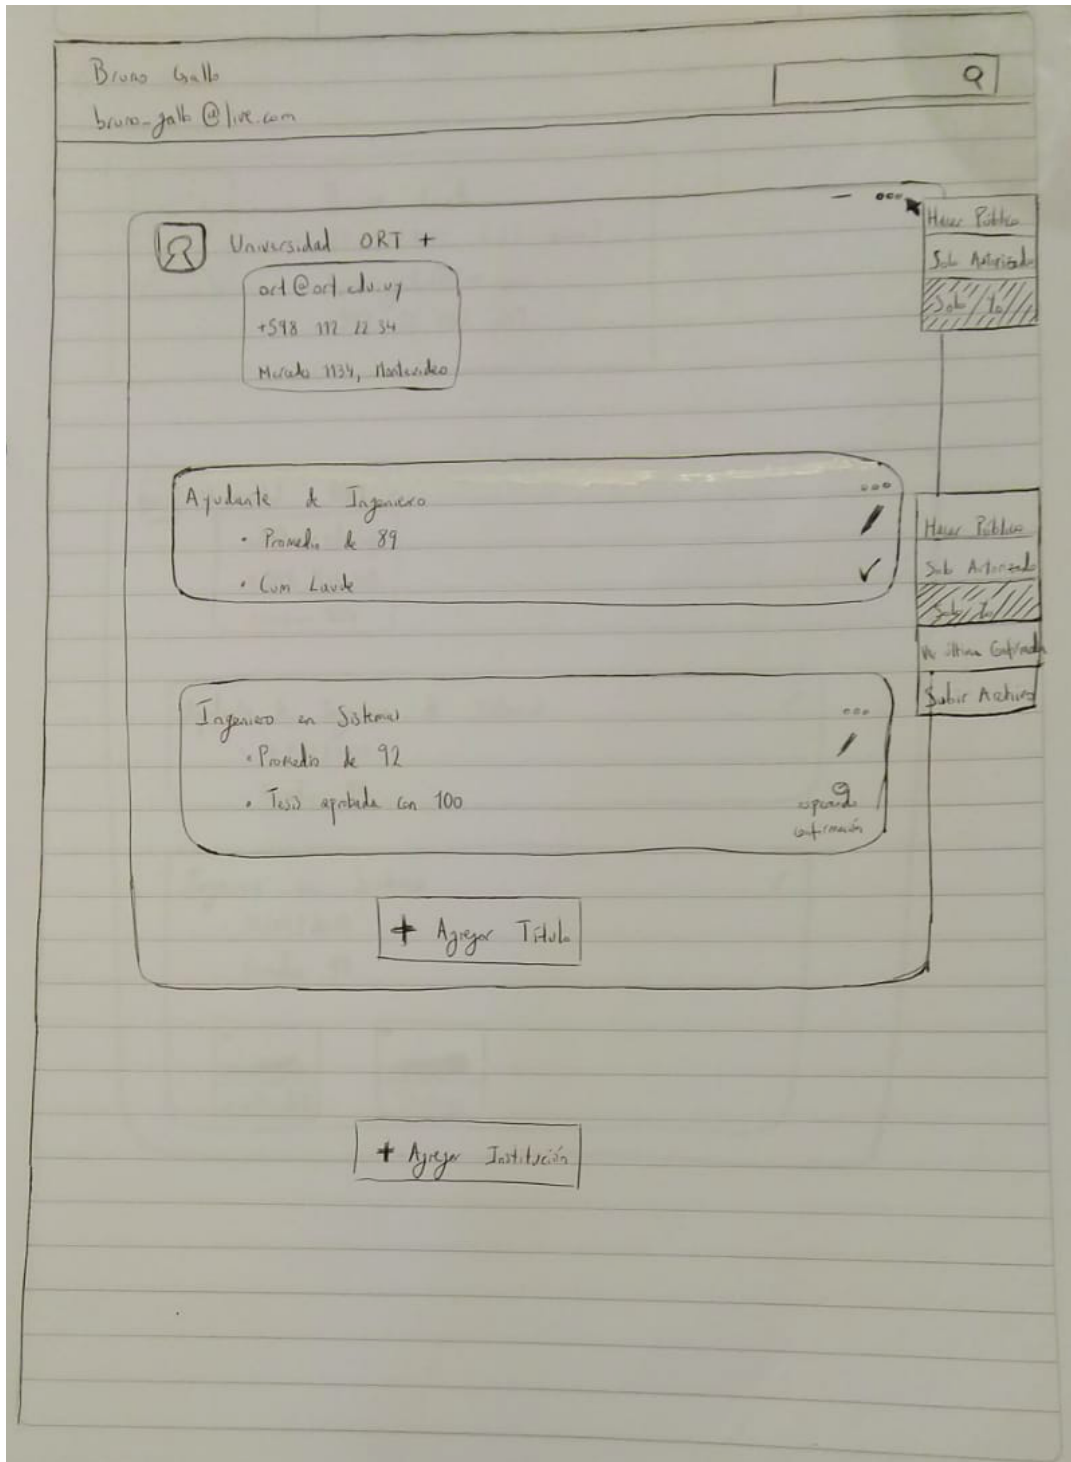 Bruno Gallo
bruno-gallo@live.com
Universidad ORT +
ort@ort.edu.uy
+598 112 22 34
Mercedes 1134, Montevideo
Hacer Público
Solo Autorizado
Solo Yo
Ayudante de Ingeniero
• Promedio de 89
• Cum Laude
Hacer Público
Solo Autorizado
Solo Yo
Ver última Confirmada
Subir Archivo
Ingeniero en Sistemas
• Promedio de 92
• Tesis aprobada con 100
esperando
confirmación
+ Agregar Título
+ Agregar Institución